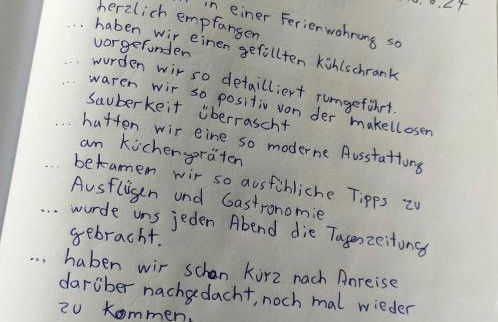 in einer Ferienwohnung so
herzlich empfangen
... haben wir einen gefüllten Kühlschrank
vorgefunden
... wurden wir so detailliert rumgeführt.
... waren wir so positiv von der makellosen
Sauberkeit überrascht
... hatten wir eine so moderne Ausstattung
an Küchengeräten
... bekamen wir so ausfühliche Tipps zu
Ausflügen und Gastronomie
... wurde uns jeden Abend die Tageszeitung
gebracht.
... haben wir schon kurz nach Anreise
darüber nachgedacht, noch mal wieder
zu kommen.